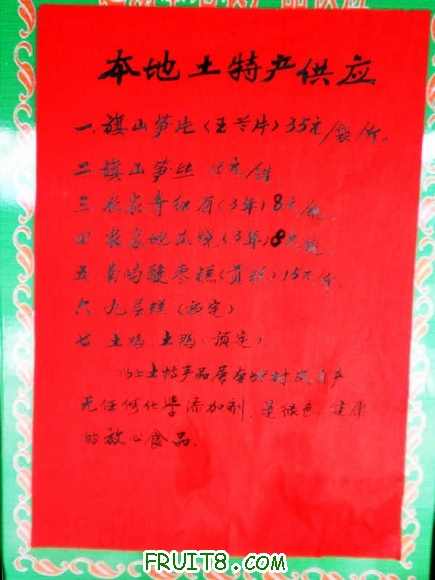 本地土特产供应
一 旗山笋片（玉兰片）35元/袋/斤
二 旗山笋丝 15元/
三 农家青红酒（3年）8元/
四 农家地瓜烧（3年）8元/
五 南酸枣糕（）15元/斤
六 九层糕（预定）
七 土鸡 土鸭（预定）
以上土特产品属本地村民自产
无任何化学添加剂，是绿色、健康
的放心食品。
FRUIT8.COM